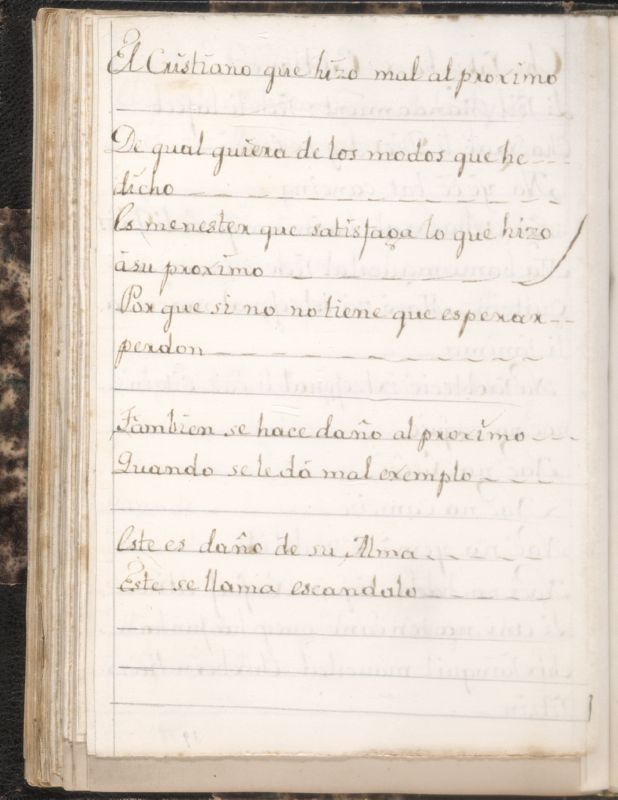 El Cristiano que hizo mal al proximo
De qual quiera de los modos que he
dicho
Es menester que satisfaga lo que hizo
á su proximo
Por que si no no tiene que esperar
perdon
Tambien se hace daño al proximo
Quando se le dá mal exemplo
Este es daño de su Alma
Este se llama escandalo